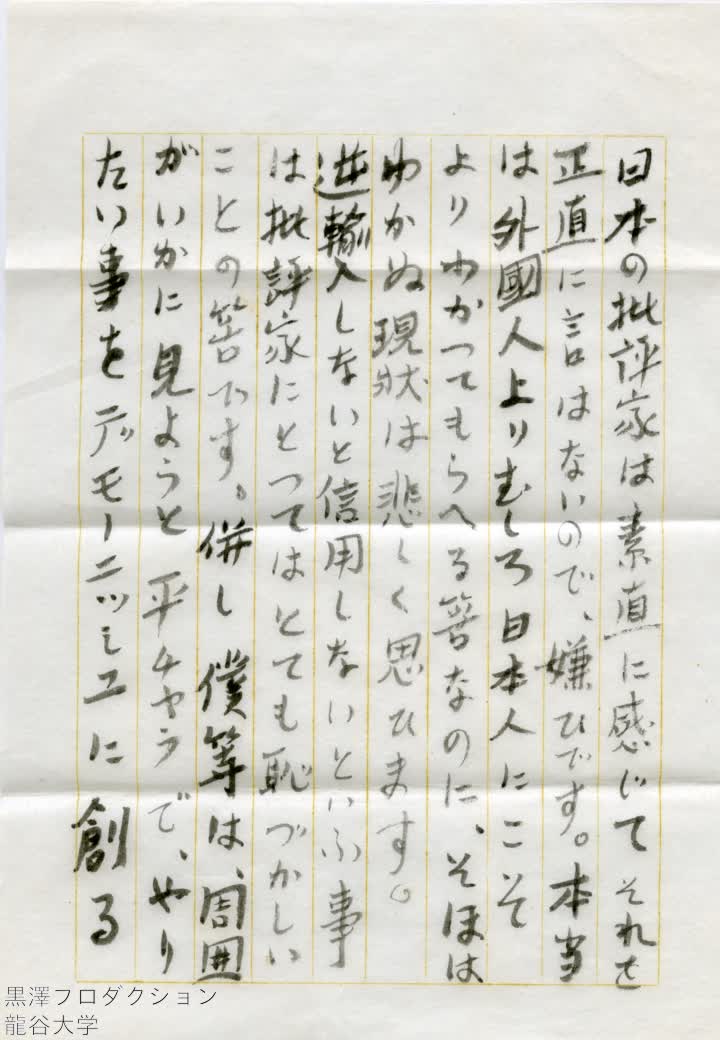 日本の批評家は素直に感じてそれを
正直に言はないので、嫌ひです。本当
は外國人よりむしろ日本人にこそ
よりわかつてもらへる筈なのに、そほは
わかぬ現状は悲しく思ひます。
逆輸入しないと信用しないといふ事
は批評家にとつてはとても恥づかしい
ことの筈です。併し僕等は、周囲
がいかに見ようと平チヤラで、やり
たい事をデモーニッシュに創る
黒澤プロダクション
龍谷大学